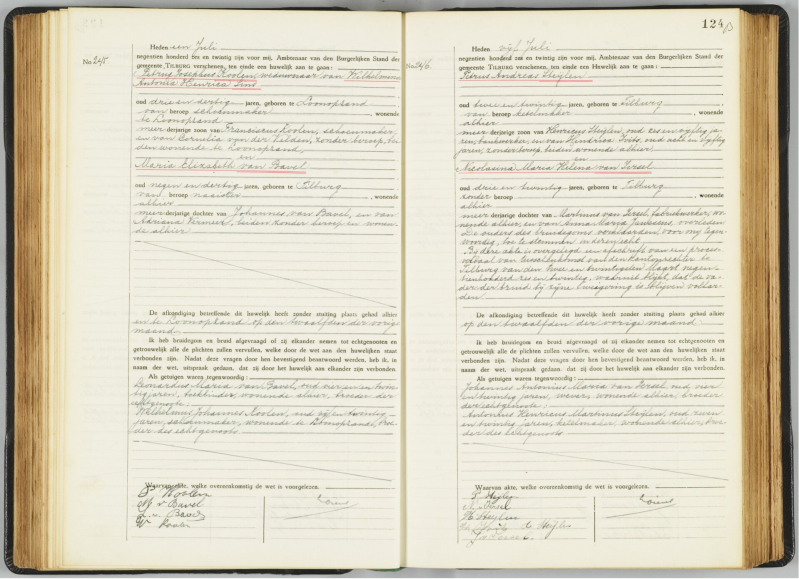 Heden een Juli
negentien honderd zes en twintig zijn voor mij, Ambtenaar van den Burgerlijken Stand der
gemeente TILBURG verschenen, ten einde een huwelijk aan te gaan:
No 245
Petrus Josephus Koolen, weduwnaar van Wilhelmina
Antonia Henrica Smis
oud drie en dertig jaren, geboren te Loonopzand
van beroep schoenmaker, wonende
te Loonopzand
meerderjarige zoon van Franciscus Koolen, schoenmaker,
en van Cornelia van der Velden, zonder beroep, bei-
den wonende te Loonopzand
en
Maria Elizabeth van Gavel
oud negen en dertig jaren, geboren te Tilburg
van beroep naaister, wonende
alhier
meerderjarige dochter van Johannes van Bavel, en van
Adriana Vermeer, beiden zonder beroep en wonen-
de alhier
De afkondiging betreffende dit huwelijk heeft zonder stuiting plaats gehad alhier
en te Loonopzand op den twaalfden der vorige
maand
Ik heb bruidegom en bruid afgevraagd of zij elkander nemen tot echtgenooten en
getrouwelijk alle de plichten zullen vervullen, welke door de wet aan den huwelijken staat
verbonden zijn. Nadat deze vragen door hen bevestigend beantwoord werden, heb ik, in
naam der wet, uitspraak gedaan, dat zij door het huwelijk aan elkander zijn verbonden.
Als getuigen waren tegenwoordig:
Leonardus Maria van Gavel, oud vier en en twin-
tig jaren, wonende alhier, broeder der
echtgenoote
Wilhelmus Johannes Koolen, oud vijf en twintig
jaren, schoenmaker, wonende te Loonopzand, broe-
der des echtgenoots
Waarvan akte, welke overeenkomstig de wet is voorgelezen.
P Koolen
M v Bavel
L. v. Bavel
W Koolen
124
Heden vijf Juli
negentien honderd zes en twintig zijn voor mij, Ambtenaar van den Burgerlijken Stand der
gemeente TILBURG verschenen, ten einde een huwelijk aan te gaan:
No 246
Petrus Andreas Heijlen
oud twee en twintig jaren, geboren te Tilburg
van beroep, wonende
alhier
meerderjarige zoon van Henricus Heijlen, oud zes en vijftig ja-
ren, en van Hendrica Smits, oud acht en vijftig
jaren, zonder beroep, beiden wonende alhier
en
Nicolasina Maria Helena van Iersel
oud drie en twintig jaren, geboren te Tilburg
zonder beroep, wonende
alhier
meerderjarige dochter van Martinus van Iersel, fabriekwerker, wo-
nende alhier, en van Anna Maria Janssens, overleden
De ouders des bruidegoms verklaarden voor mij tegen-
woordig, toe te stemmen in deze echt
Bij deze akte is overgelegd een afschrift van een proces-
verbaal van tusschenkomst van den Kantonrechter te
Tilburg van den twee en twintigsten Maart negen-
tienhonderd zes en twintig, waaruit blijkt, dat de va-
der der bruid bij zijne weigering te blijven volhar-
den
De afkondiging betreffende dit huwelijk heeft zonder stuiting plaats gehad alhier
op den twaalfden der vorige maand
Ik heb bruidegom en bruid afgevraagd of zij elkander nemen tot echtgenooten en
getrouwelijk alle de plichten zullen vervullen, welke door de wet aan den huwelijken staat
verbonden zijn. Nadat deze vragen door hen bevestigend beantwoord werden, heb ik, in
naam der wet, uitspraak gedaan, dat zij door het huwelijk aan elkander zijn verbonden.
Als getuigen waren tegenwoordig:
Johannes Antonius Maria van Iersel, oud vier
en twintig jaren, wever, wonende alhier, broeder
der echtgenoote
Antonius Henricus Martinus Heijlen, oud zeven
en twintig jaren, wonende alhier, broe-
der des echtgenoots
Waarvan akte, welke overeenkomstig de wet is voorgelezen.
P. Heijlen
N. v Iersel
H Heijlen
Heijlen